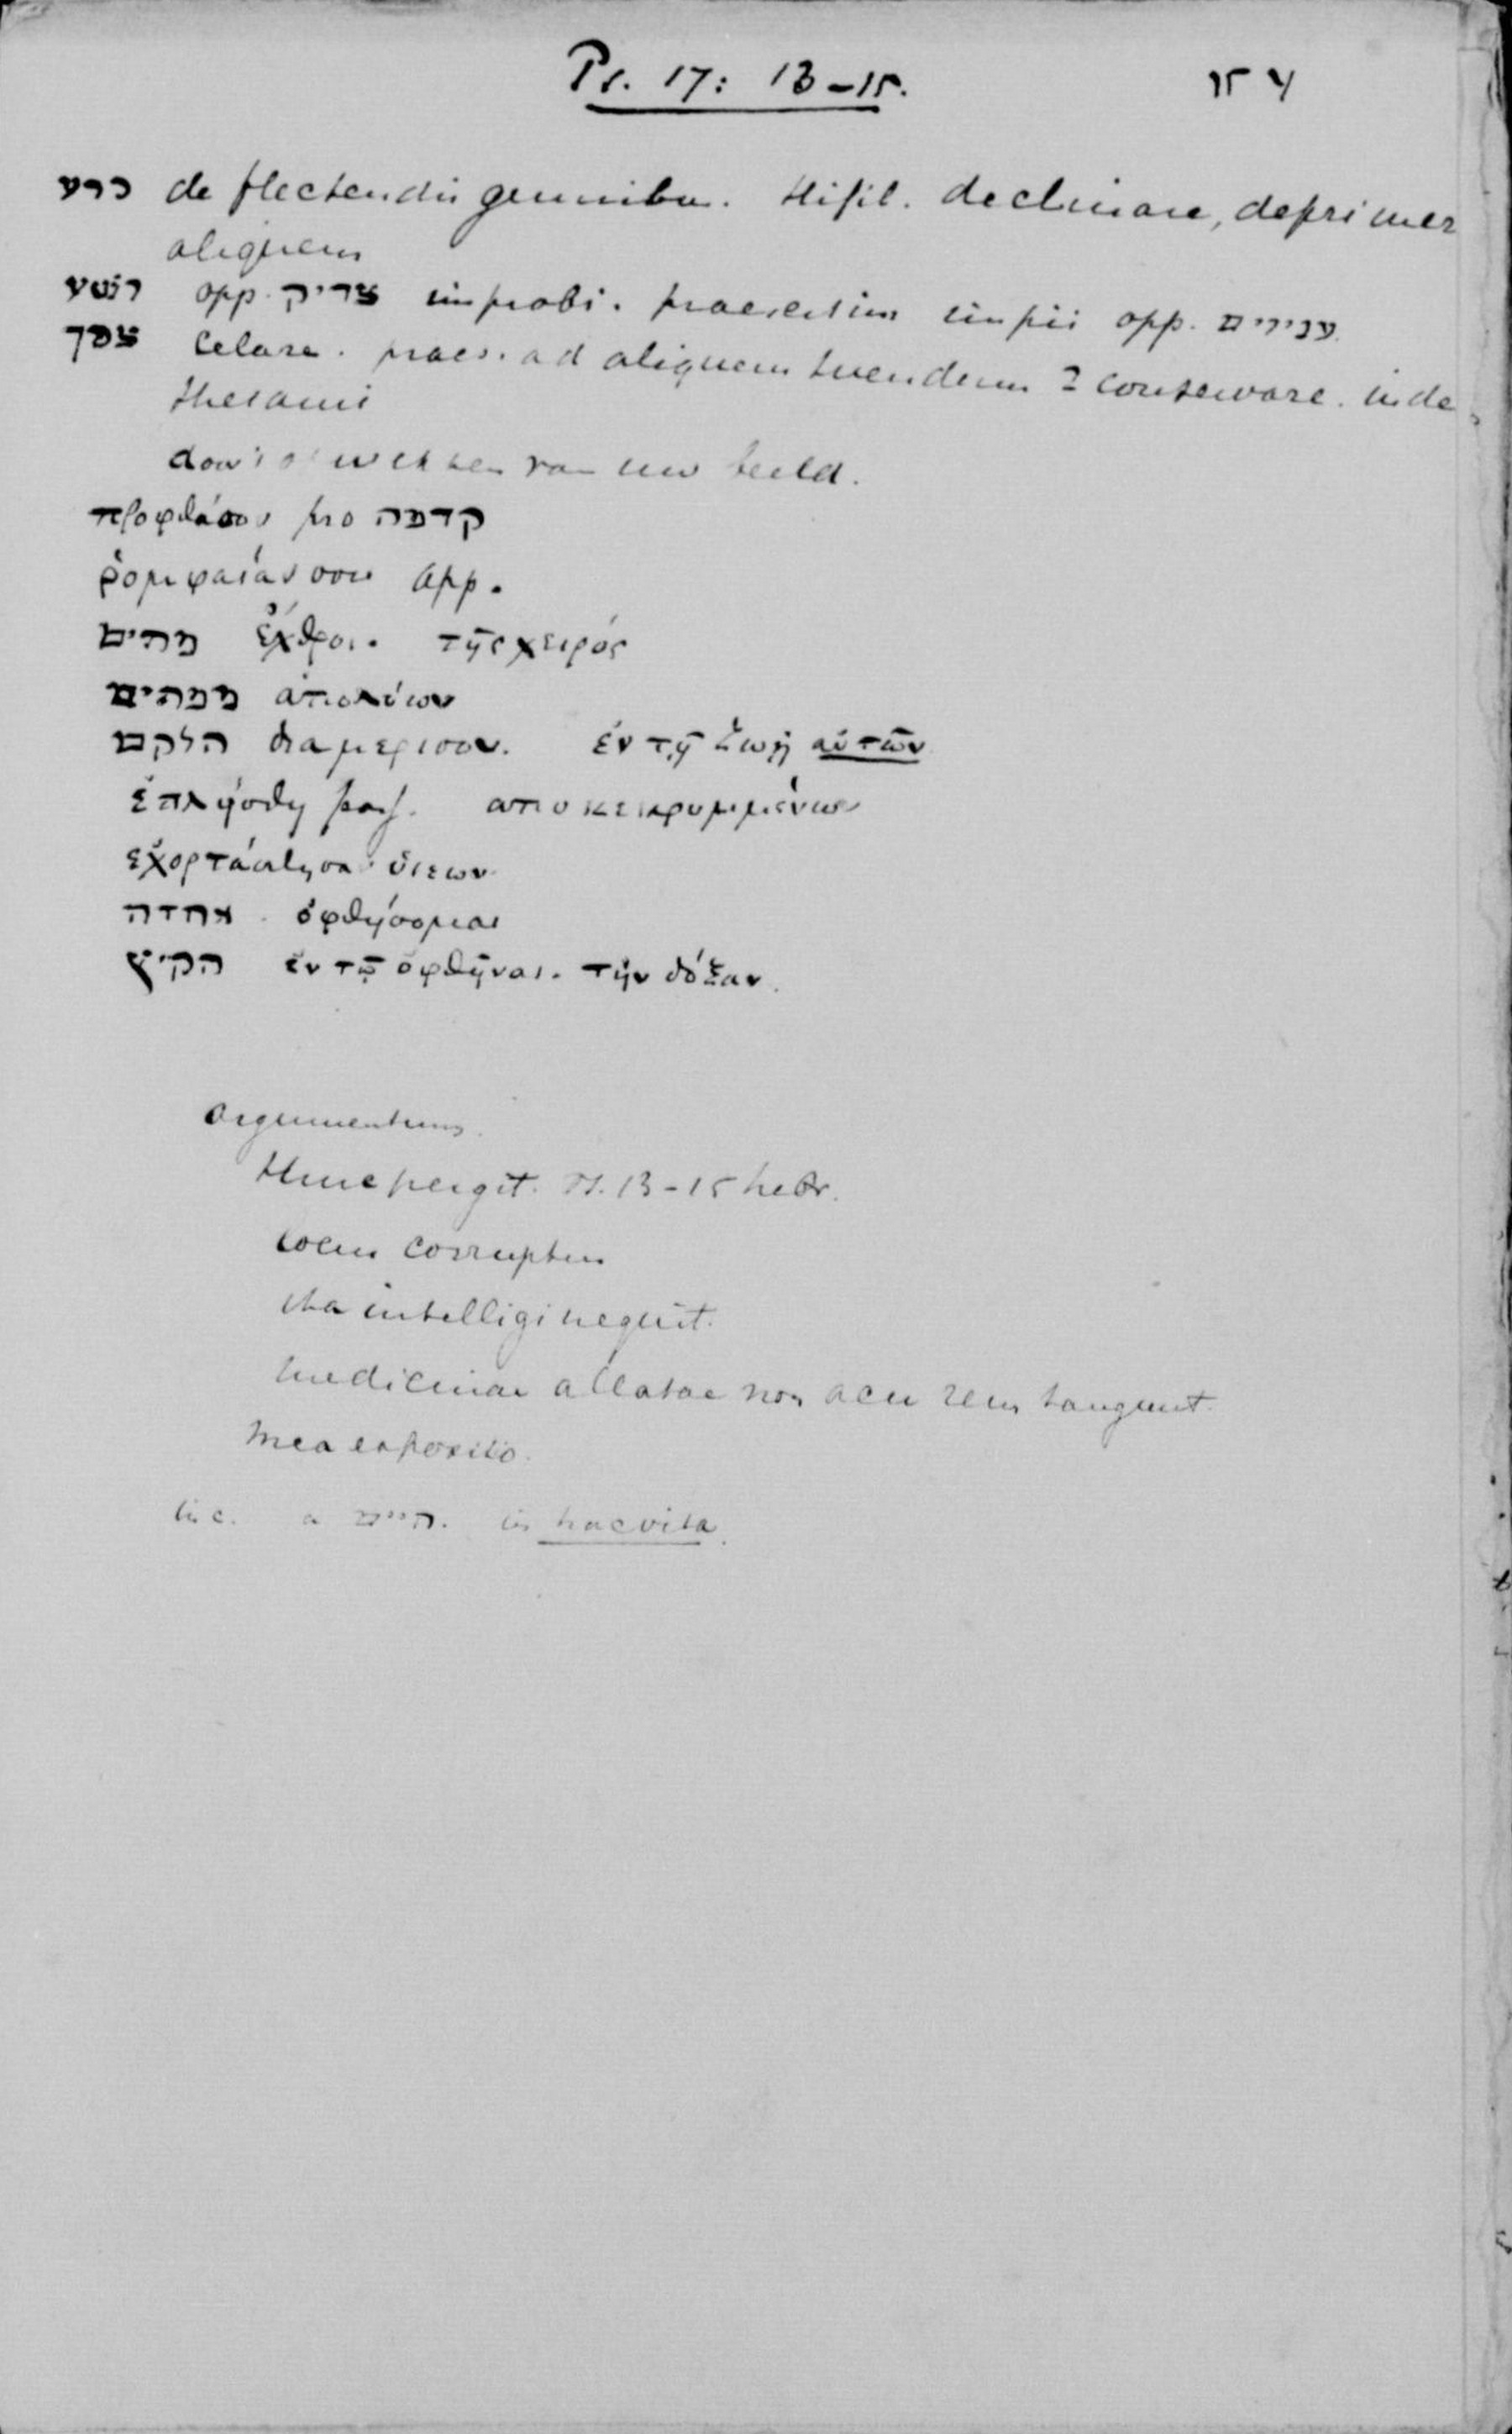 Ps. 17: 13-15.
כרע de flectendis genuibus. Hifil. declinare, deprimere
aliquem
רשע opp. צדיק improbi. praesertim impii opp. עניים.
צפן celare. praes. ad aliquem tuendum = conservare. inde
thesauri
van uw beeld.
προφθάσον pro קדמה
ῥομφαίαν σου app.
מתים ἔχθροι. τῆς χειρός
ממתים ἀπολύων
חלקם διαμερισον. ἐν τῇ ζωῇ αὐτῶν
ἐπλήσθη pass. αποκεκρυμμένων
ἐχορτάσθησαν ὑιεων
אחזה ὀφθήσομαι
הקיץ ἐν τῷ ὀφθῆναι. τὴν δόξαν.
argumentum.
Hinc pergit. Ps. 13-15 hebr.
locus corruptus
ita intelligi nequit.
medicinae allatae non acu rem tangunt.
Mea expositio.
a חיים. in hac vita.